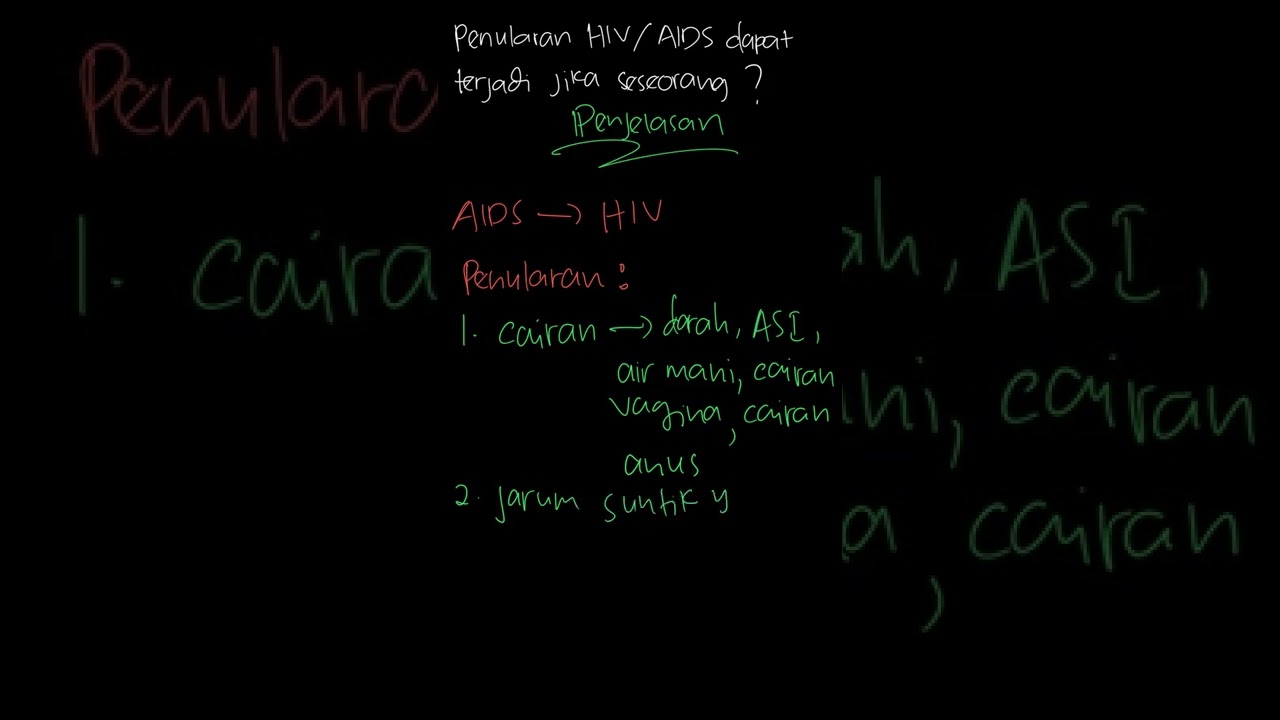 Penularan HIV/AIDS dapat
terjadi jika seseorang ?
Penjelasan
AIDS → HIV
Penularan :
1. cairan → darah, ASI,
air mani, cairan
vagina, cairan
anus
2. jarum suntik y